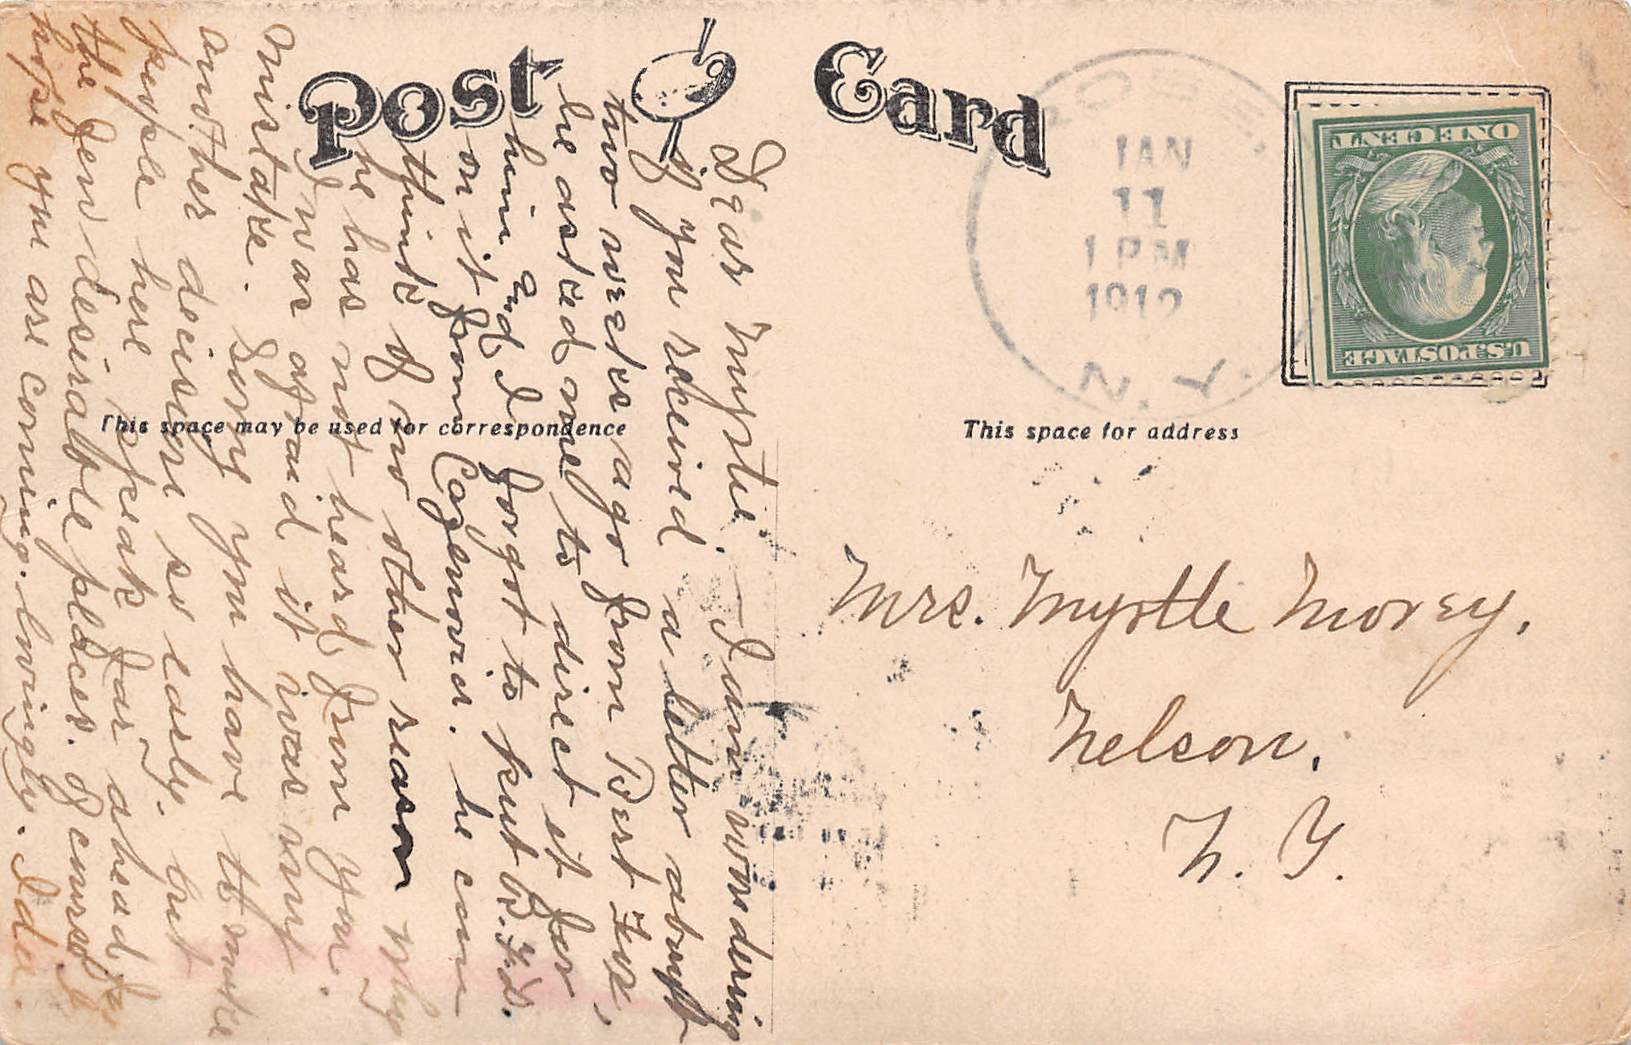 Post Card
ROSE,
JAN
11
1 PM
1912
N.Y.
ONE CENT
U.S. POSTAGE
This space may be used for correspondence
This space for address
Dear Myrtie. – I am wondering
if you received a letter about
two weeks ago from Bert Fox,
he asked me to direct it for
him and I forgot to put R.F.D.
on it from Cazenovia. he can
think of no other reason why
he has not heard from you.
I was afraid it was my
mistake. Sorry you have to make
another decision so early. but
people here speak far ahead for
the few desirable places. of course I
hope you are coming. lovingly. Ida.
Mrs. Myrtle Morey,
Nelson,
N. Y.